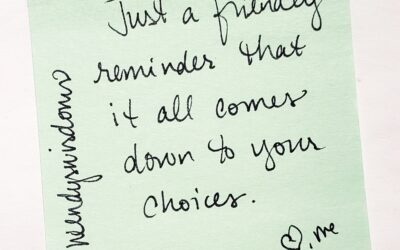 Just a friendly
reminder that
it all comes
down to your
choices.
♡, me